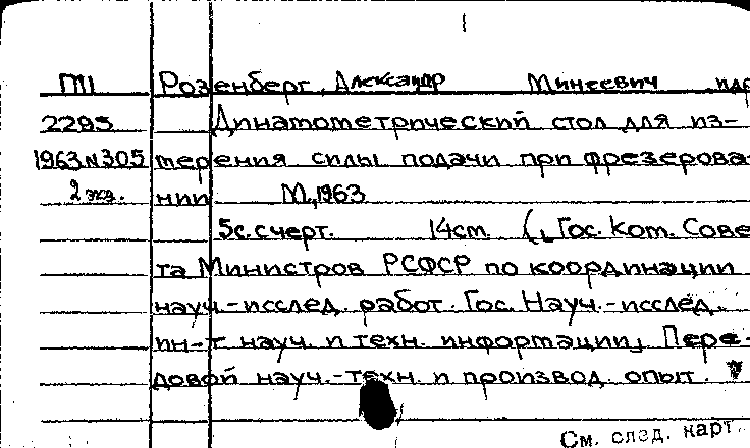 П1 Розенберг, Александр Минеевич и др
2295 Динамометрический стол для из-
1963 N 305 мерения силы подачи при фрезерова-
2 экз. нии М., 1963
5с. с черт. 14 см. (Гос. Ком. Сове-
та Министров РСФСР по координации
науч.-исслед. работ. Гос. Науч.-исслед.
ин-т науч. и техн. информации, Пере-
довой науч.-техн. и производ. опыт.
См. след. карт.